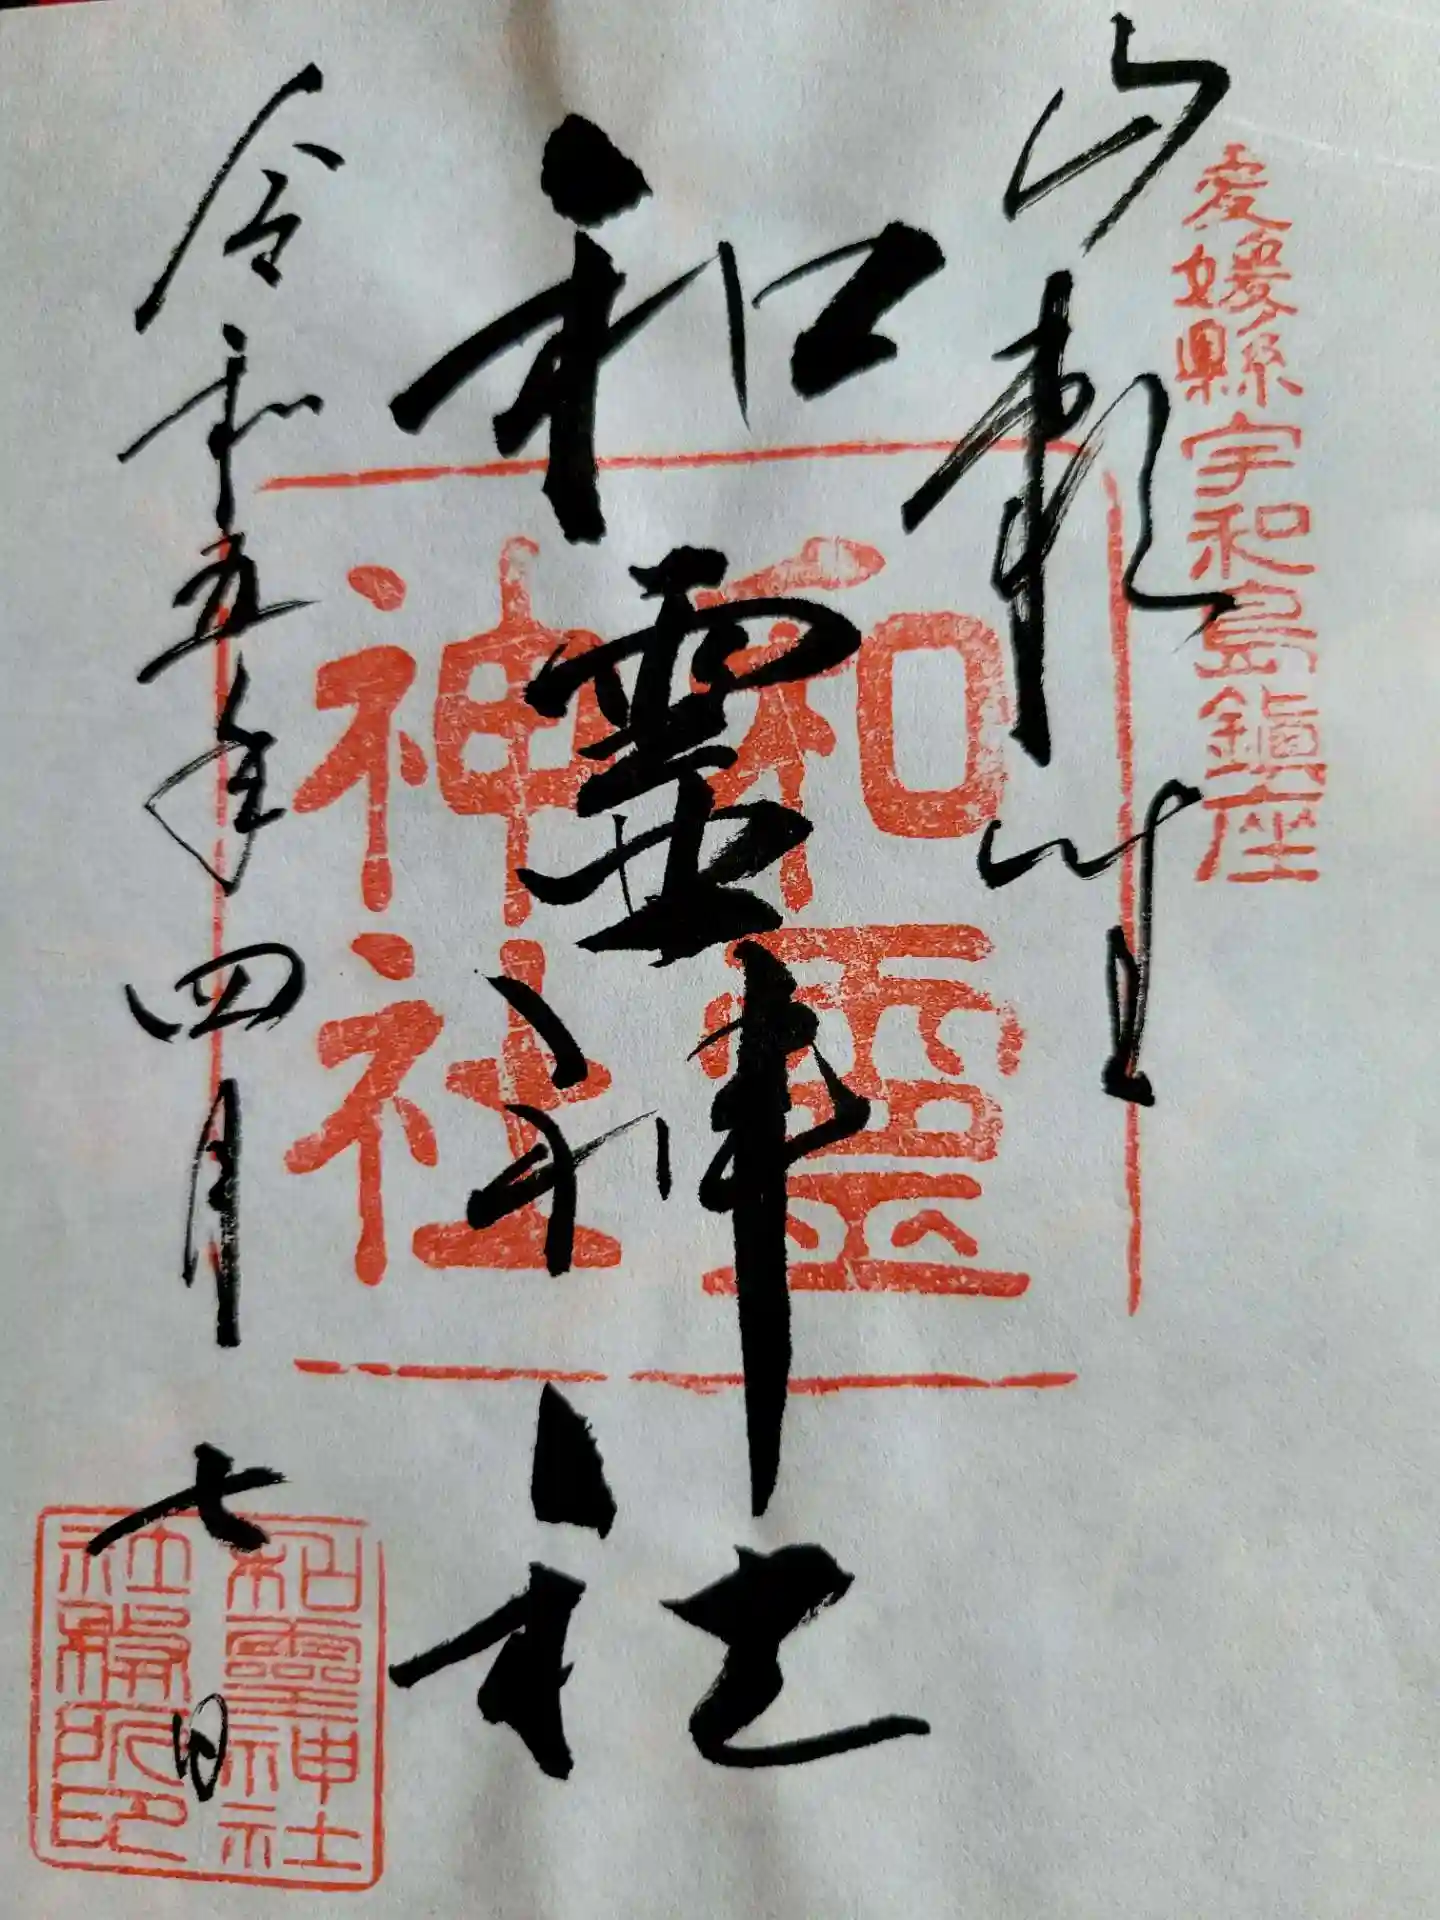 愛媛縣宇和島鎮座
和霊神社
和靈
神社
令和五年四月七日
和靈神社
社務所印